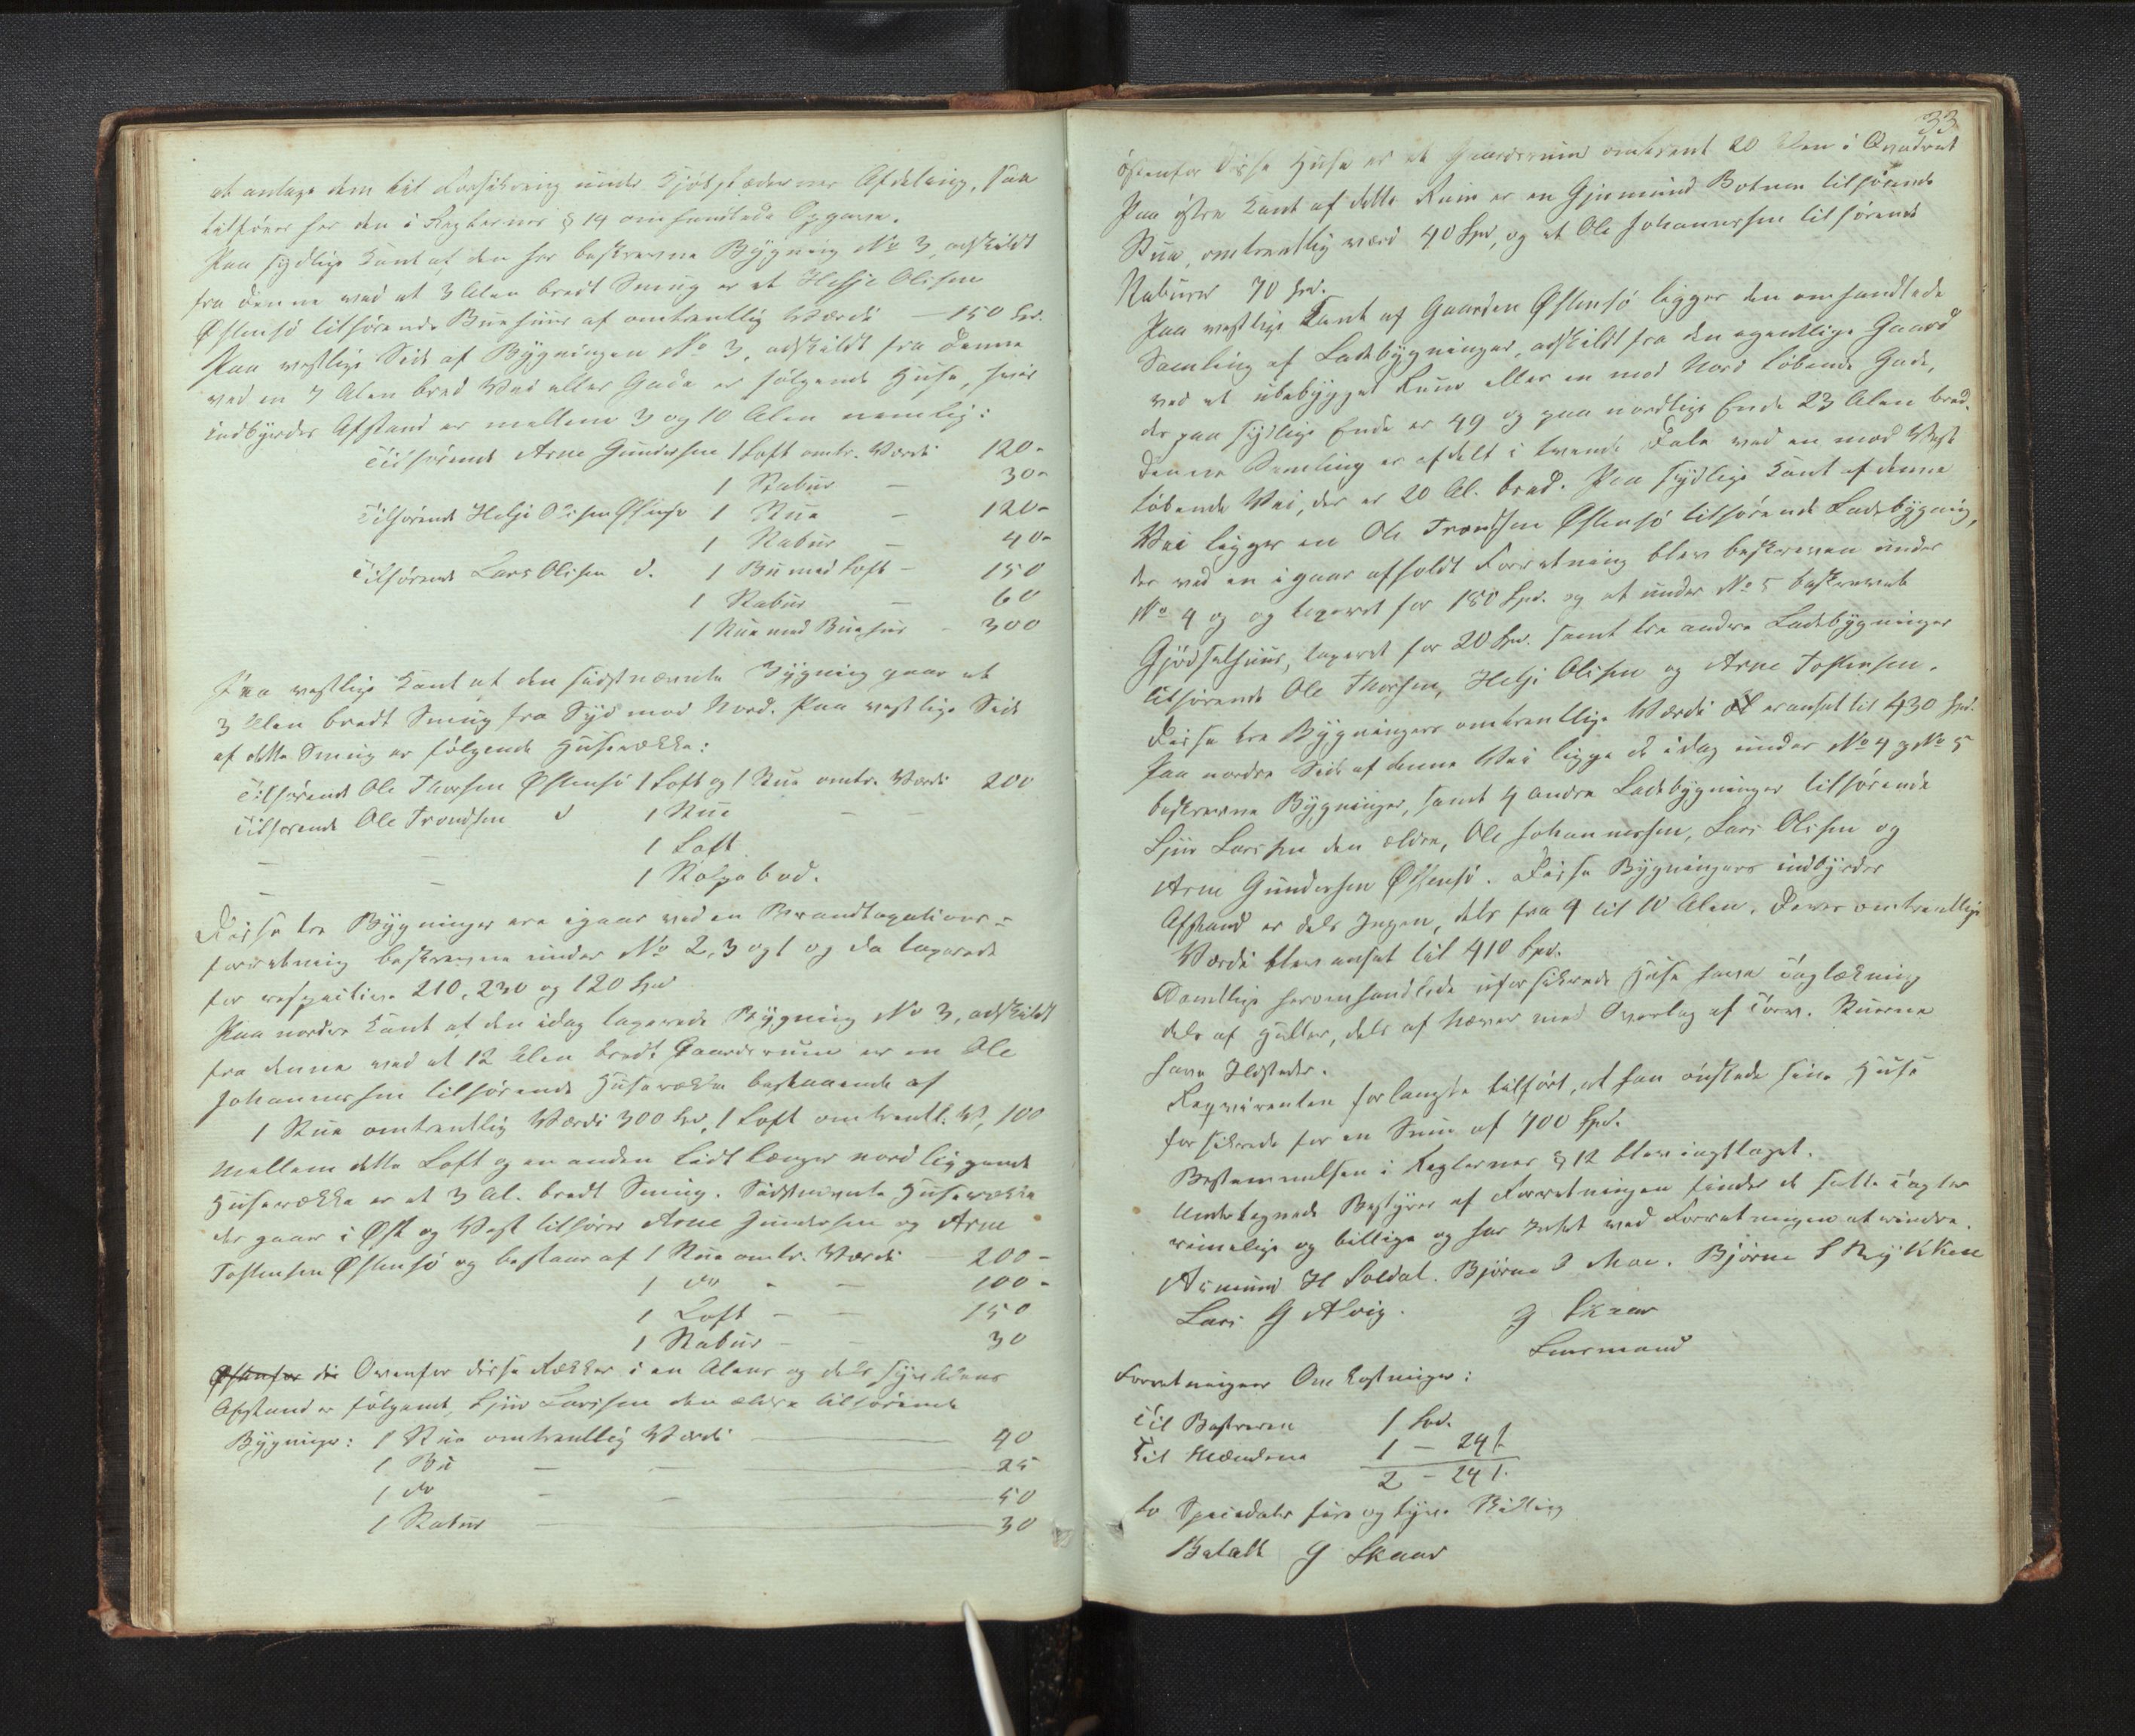 at antage dem til Forsikring under Kjøbstædernes Afdeling, saa
tilføres her den i Reglernes § 14 omhandlede Opgave.
Paa sydlige Kant af den her beskrevne Bygning No 3, adskildt
fra denne ved et 3 Alen bredt Smug er et Helje Olisen
Østensø tilhørende Buehuus af omtrentlig Værdi — 150 Spd.
Paa vestlige Side af Bygningen No 3, adskildt fra denne
ved en 7 Alen bred Vei eller Gade er følgende Huse, hvis
indbyrdes Afstand er mellem 3 og 10 Alen nemlig:
Tilhørende Arne Gundersen 1 Loft omtr. Værdi 120 -
1 Stabur — 30 -
Tilhørende Helje Olisen Østensø 1 Stue — 120 -
1 Stabur — 40 -
Tilhørende Lars Olisen d. 1 Bu med Loft - 150
1 Stabur — 60
1 Stue med Buehus - 300
Paa vestlige Kant af den sidstnævnte Bygning gaar et
3 Alen bredt Smug fra Syd mod Nord. Paa vestlige Side
af dette Smug er følgende Huserække:
Tilhørende Ole Thorsen Østensø 1 Loft og 1 Stue omtr. Værdi 200
Tilhørende Ole Trondsen d 1 Stue — —
— — 1 Loft
— — 1 Stolpebod.
Disse tre Bygninger ere igaar ved en Brandtaxations-
forretning beskrevne under No 2, 3 og 1 og da taxerede
for respective 210, 230 og 120 Spd
Paa nordre Kant af den idag taxerede Bygning No 3, adskildt
fra denne ved et 12 Alen bredt Gaardsrum er en Ole
Johannessen tilhørende Huserække bestaaende af
1 Stue omtrentlig Værdi 300 Spd, 1 Loft omtrentl. V. 100
Mellem dette Loft og en anden lidt længer nord liggende
Huserække er et 3 Al. bredt Smug. Sidstnævnte Huserække
der gaar i Øst og Vest tilhører Arne Gundersen og Arne
Tostensen Østensø og bestaar af 1 Stue omtr. Værdi — 200 -
1 do - — 100 -
1 Loft - — 150
1 Stabur - — 30
Østenfor di Ovenfor disse Rækker i en Alens og dels Alens
Afstand er følgende, Sjur Larssen den ældre tilhørende
Bygninger: 1 Stue omtrentlig Værdi — 40
1 Bu — — 25
1 do — — 50
1 Stabur — 30
33
østenfor disse Huse er et Gaardsrum omtrent 20 Alen i Qvadrat
Paa østre Kant af dette Rum er en Gjermund Botnen tilhørende
Stue, omtrentlig værd 40 Spd, og et Ole Johannessen tilhørende
Stabuer 70 Spd.
Paa vestlige Kant af Gaarden Østensø ligger den omhandlede
Samling af Ladebygninger, adskildt fra den egentlige Gaard
ved et ubebygget Rum eller en mod Nord løbende Gade,
der paa sydlige Ende er 49 og paa nordlige Ende 23 Alen bred.
Denne Samling er afdelt i tvende Dele ved en mod Vest
løbende Vei, der er 20 Al. bred. Paa sydlige Kant af denne
Vei ligger en Ole Trondsen Østensø tilhørende Ladebygning,
der ved en igaar afholdt Forretning blev beskreven under
No 4 og og taxeret for 180 Spd. og et under No 5 beskrevet
Gjødselhuus, taxeret for 20 Spd. samt tre andre Ladebygninger
tilhørende Ole Thorsen, Helje Olisen og Arne Tostensen.
Disse tre Bygningers omtrentlige Værdi er ansat til 430 Spd.
Paa nordre Side af denne Vei ligge de idag under No 4 og No 5
beskrevne Bygninger, samt 4 andre Ladebygninger tilhørende
Sjur Larssen den ældre, Ole Johannessen, Lars Olisen og
Arne Gundersen Østensø. Disse Bygningers indbyrdes
Afstand er dels Ingen, dels fra 4 til 10 Alen. Deres omtrentlige
Værdi blev ansat til 410 Spd.
Samtlige heromhandlede uforsikrede Huse have Tagtækning
dels af Heller, dels af Næver med Overlag af Tørv. Stuerne
have Ildsteder.
Reqvirenten forlangte tilført, at han ønskede sine Huse
forsikrede for en Sum af 700 Spd.
Bestemmelsen i Reglernes § 12 blev iagttaget.
Undertegnede Bestyrer af Forretningen finder de satte Taxter
rimelige og billige og har Intet ved Forretningen at erindre.
Asmund H Soldal. Bjørne J Moe. Bjørne S Røykkien
Lars G Alvig. G Skaar
Lensmand
Forretningens Omkostninger:
Til Bestyreren 1 Spd.
Til Mændene 1 — 24 s
2 — 24 s.
to Speciedaler fire og tyve Skilling
Betalt G Skaar